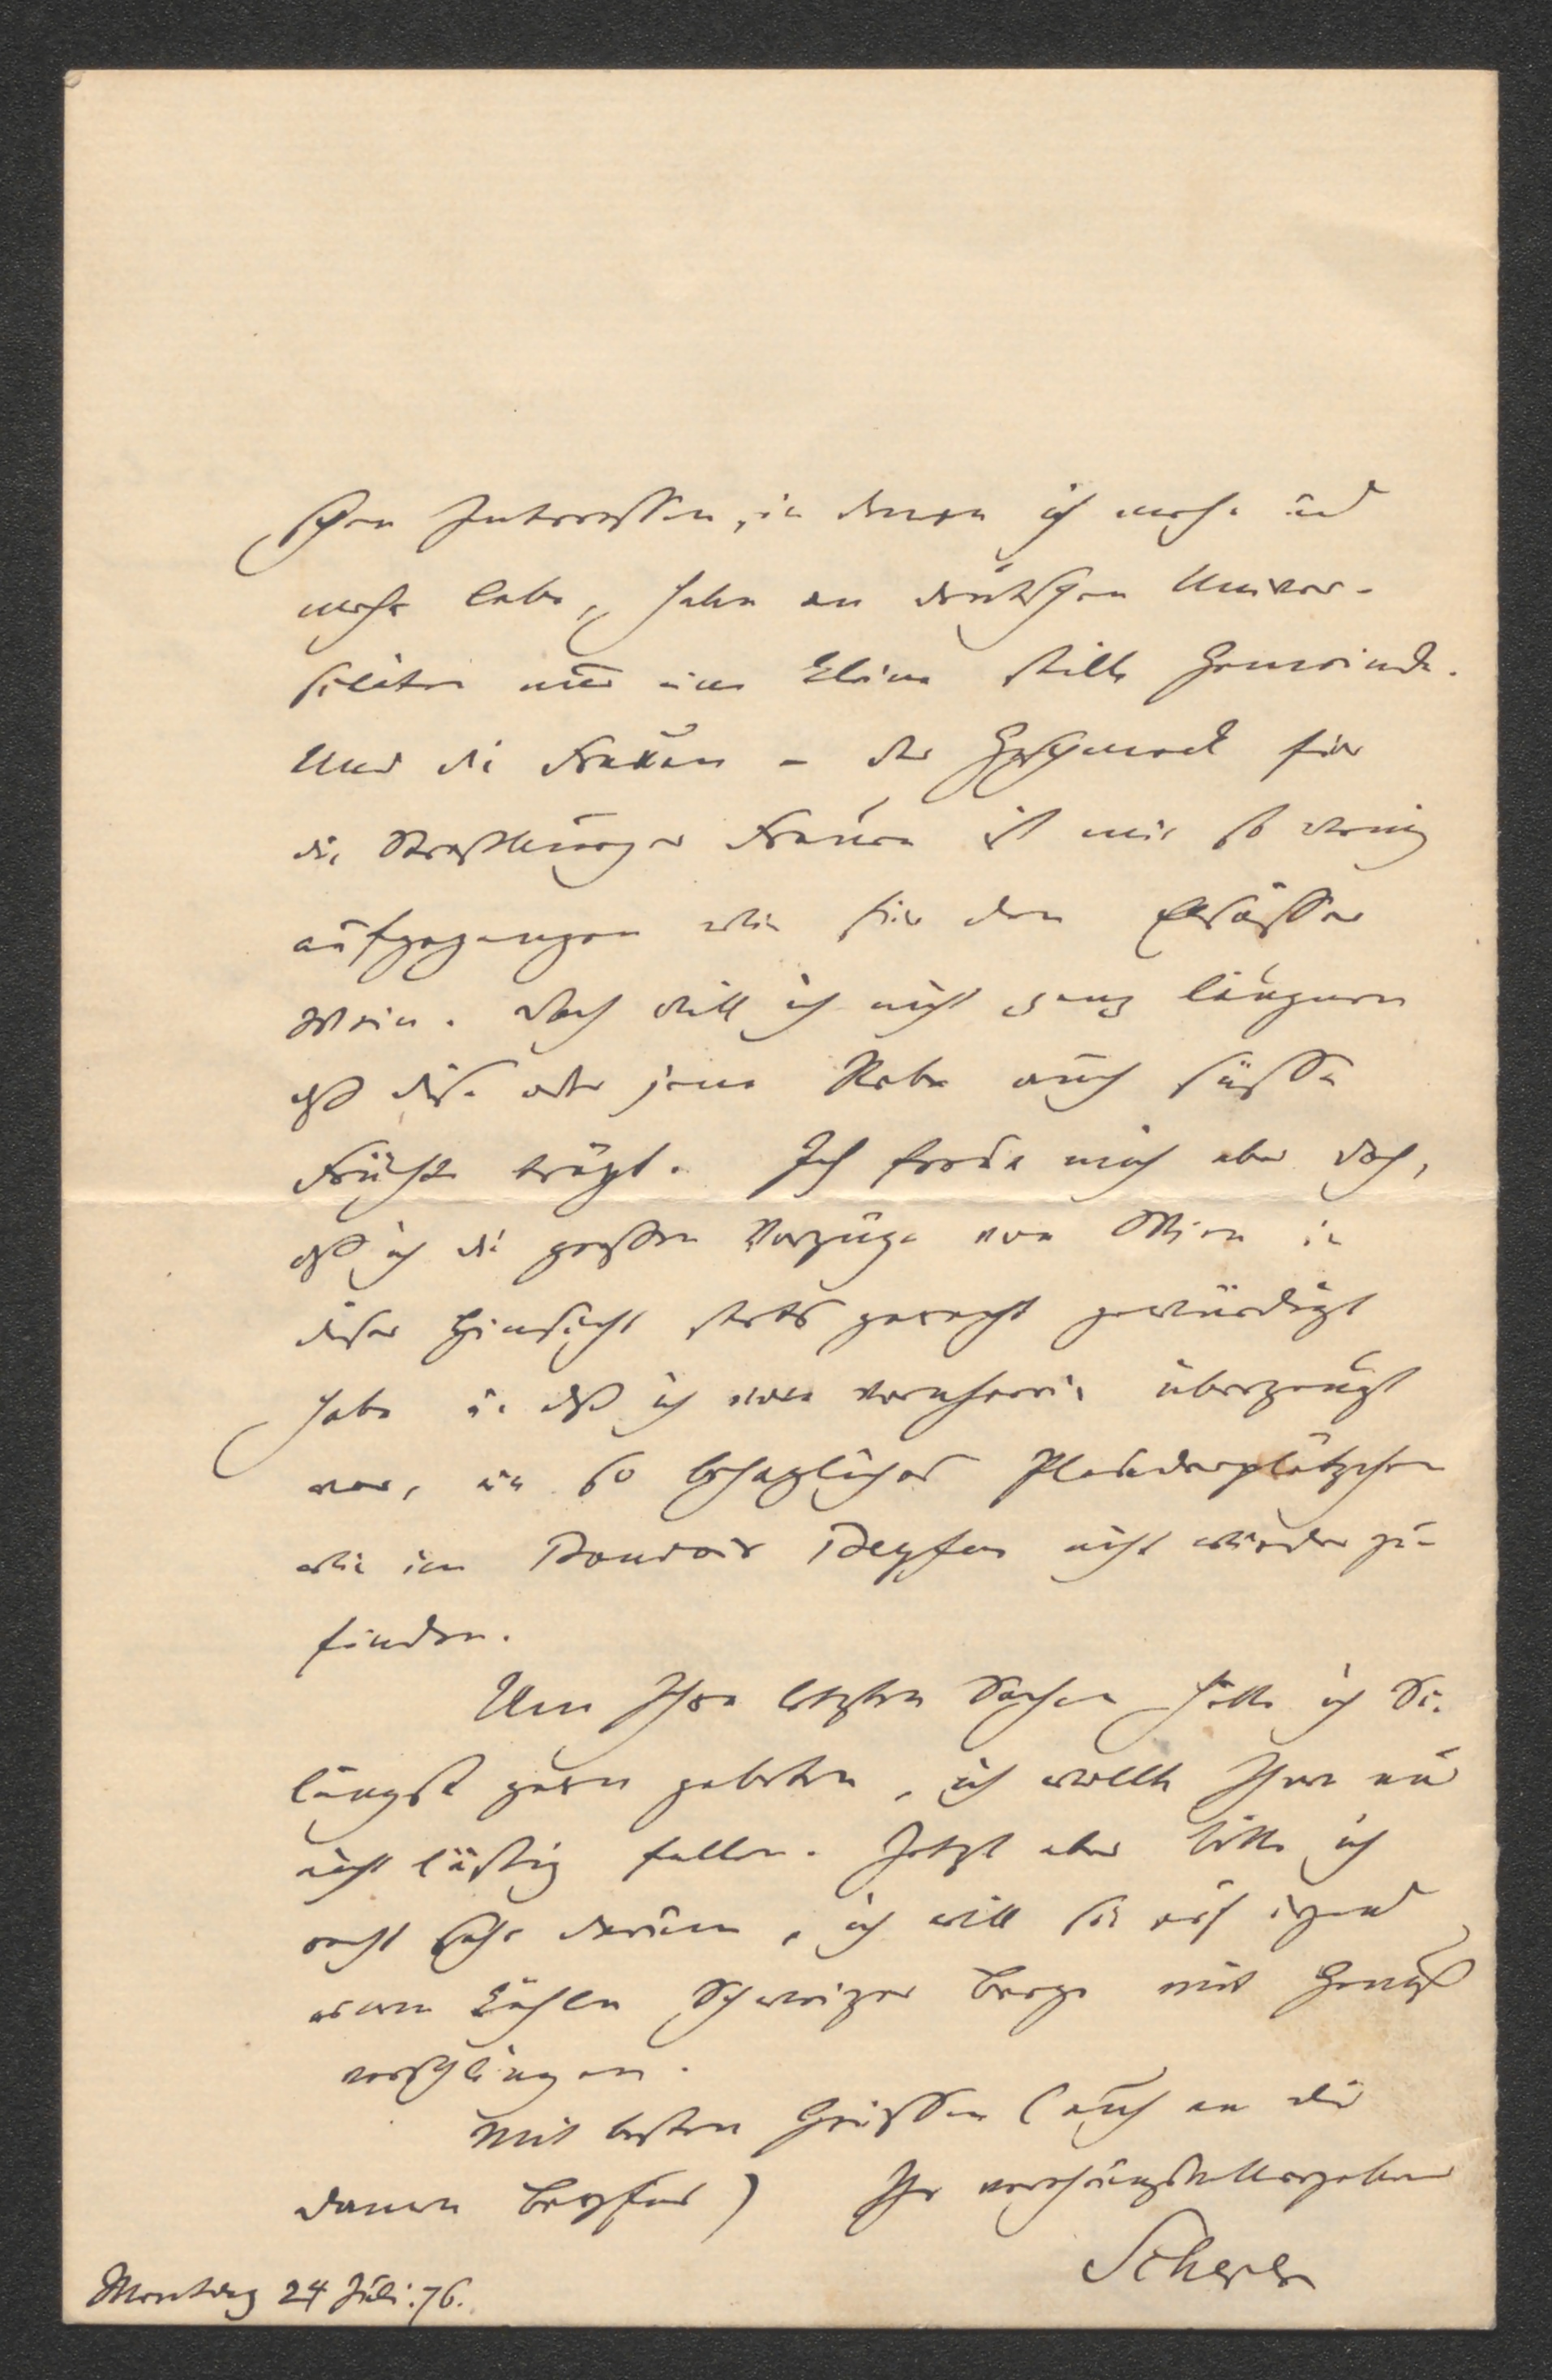 schen Interessen, in denen ich mehr und
mehr lebe, haben an deutschen Univer-
sitäten nur eine kleine stille Gemeinde.
Und die Frauen – der Geschmack für
die Straßburger Frauen ist mir so wenig
aufgegangen wie für den Elsässer
Wein. Doch will ich nicht ganz läugnen
daß diese oder jene Rebe auch süsse
Früchte trägt. Ich freue mich aber doch,
daß ich die großen Vorzüge von Wien in
dieser Hinsicht stets gerecht gewürdigt
habe u. daß ich von vornherein überzeugt
war, ein so behagliches Plauderplätzchen
wie im Boudoir Bepfus nicht wieder zu
finden.
Um Ihre letzten Sachen hätte ich Sie
längst gern gebeten, ich wollte Ihnen nur
nicht lästig fallen. Jetzt aber bitte ich
recht sehr darum, ich will sie auf irgend
einem kühlen Schweizer Berge mit Genuß
verschlingen.
Mit besten Grüssen (auch an die
Damen Bepfus) Ihr
Scherer
Montag 24 Juli. 76.